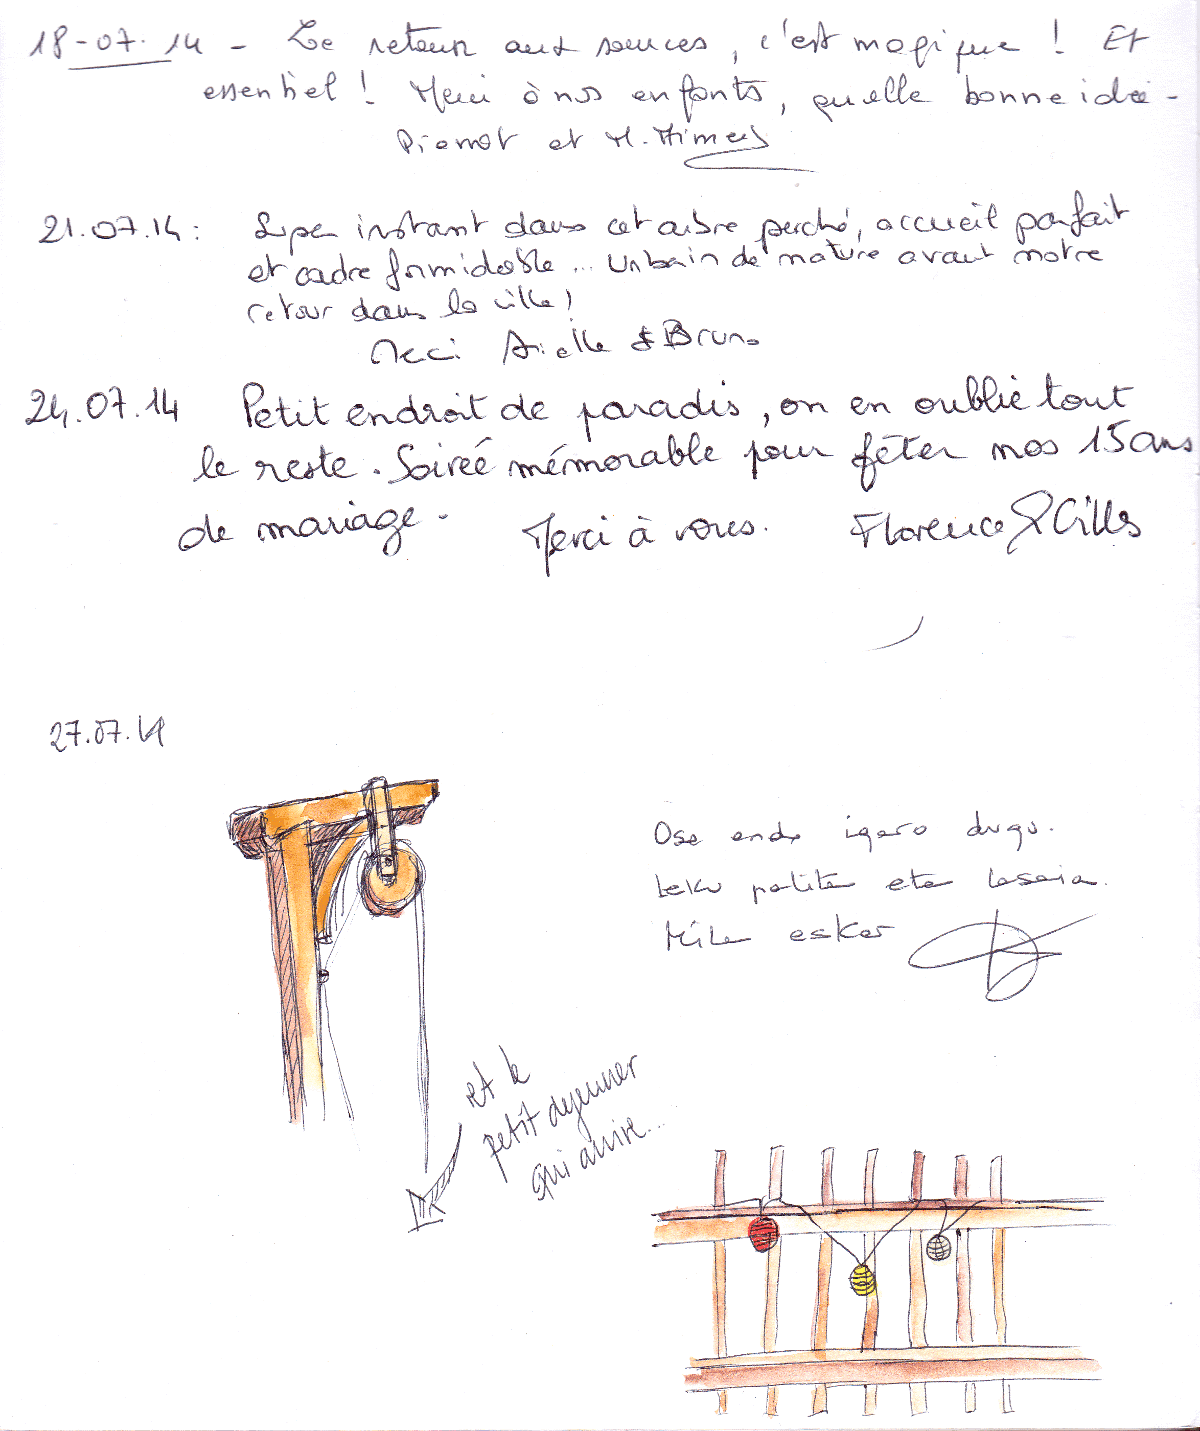 18-07-14 - Le retour aux sources, c'est magique ! Et
essentiel ! Merci à nos enfants, quelle bonne idée -
Pierrot et M.
21.07.14 : Super instant dans cet arbre perché, accueil parfait
et cadre formidable ... Un bain de nature avant notre
retour dans la ville !
Merci Arielle & Bruno
24.07.14 Petit endroit de paradis, on en oublie tout
le reste. Soirée mémorable pour fêter nos 15 ans
de mariage.
Merci à vous. Florence & Gilles
27.07.14
Oso ondo igaro dugu.
leku polita eta lasaia.
Mila esker
et le
petit dejeuner
qui arrive...